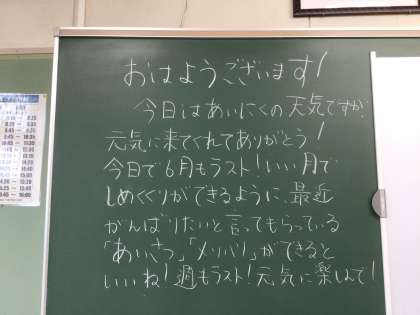 おはようございます!
今日はあいにくの天気ですが
元気に来てくれてありがとう!
今日で6月もラスト!いい月で
しめくくりができるように、最近
がんばりたいと言ってもらっている
「あいさつ」「メリハリ」ができると
いいね!週もラスト!元気に楽しんで!